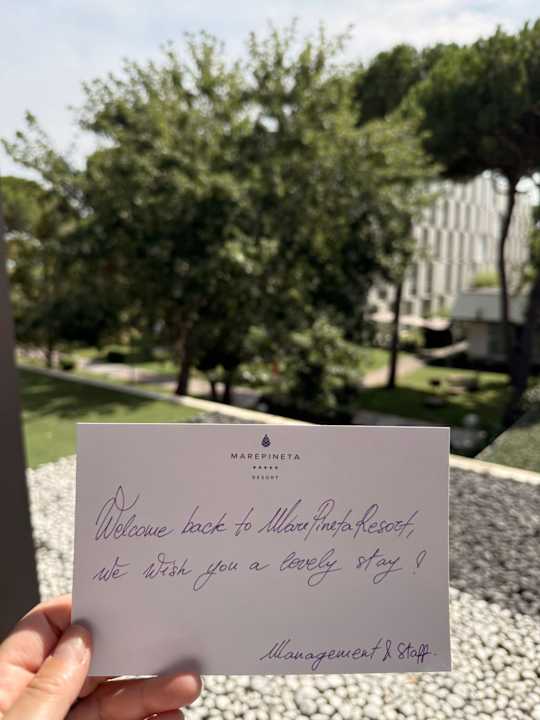 MAREPINETA
★★★★★
RESORT
Welcome back to MarePineta Resort,
we wish you a lovely stay!
Management & Staff.